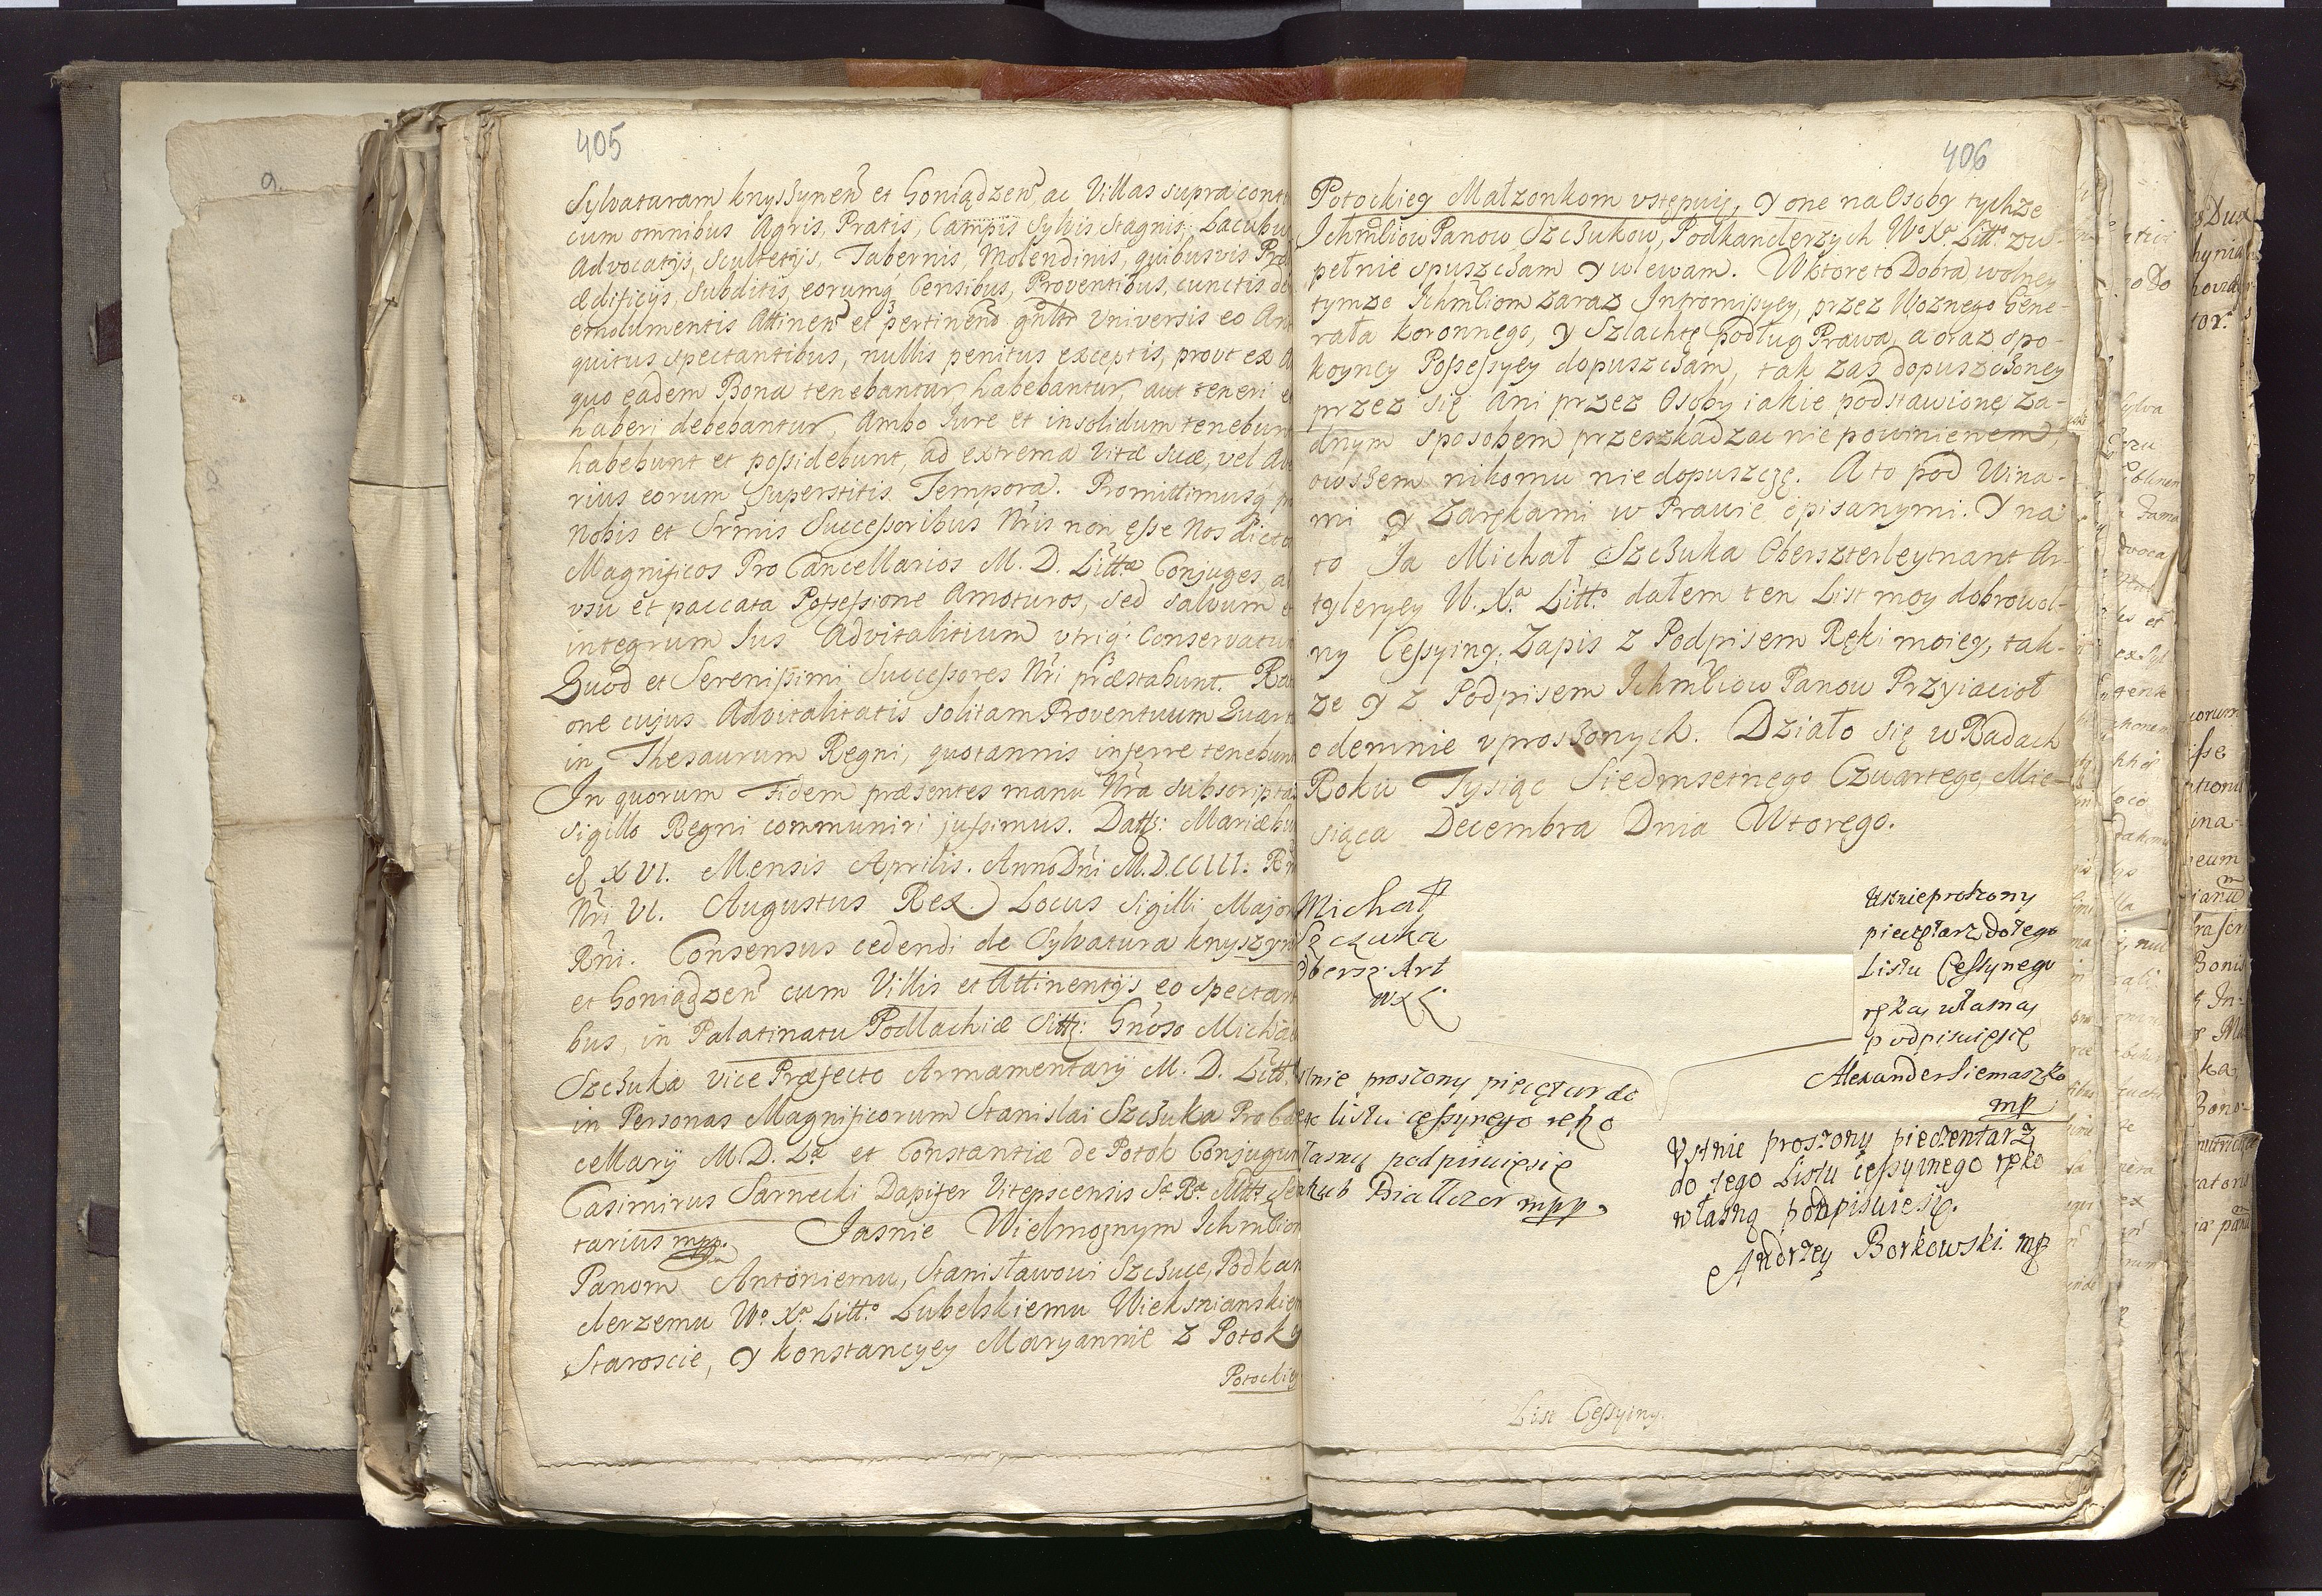 405
Sylvaturam knyszynen̄ et Goniądzen̄ ac Villas supra cont
cum omnibus Agris, Pratis, Campis Sylvis, Stagnis, Lacubu
Advocatijs, Scultetijs, Tabernis, Molendinis, quibusvis Præ
ædificijs, Subditis, eorumq̃ Censibus, Proventibus, cunctis de
emolumentis Attinen̄ et pertinen̄ gñltr Universis eo Ant
quitus spectantibus, nullis penitus exceptis, prout ex A
quo eadem Bona tenebantur, habebantur, aut teneri e
haberi debebantur, Ambo Jure et insolidum tenebun
habebunt et possidebunt, ad extrema Vitæ suæ, vel Alt
rius eorum Superstitis Tempora. Promittimusq̃ p
Nobis et Srm̃is Successoribus Nr̃is non esse Nos dicto
Magnificos Pro Cancellarios M. D. Litt.æ Conjuges, a
vsu et paccata Possessione Amoturos, sed salvum e
integrum Jus Advitalitium utriq̃: Conservatur
Quod et Serenissimi Successores Nr̃i præstabunt. Rat
one cujus Advitalitatis solitam Proventuum Quart
in Thesaurum Regni, quotannis inferre tenebunt
In quorum Fidem præsentes manu Nr̃a subscriptas
sigillo Regni communiri jussimus. Datt: Mariæbu
d XVI. Mensis Aprilis. Anno Dñi M.D.CCIII: Rñ
Nr̃i VI. Augustus Rex.) Locus Sigilli Major
Rñi. Consensus cedendi de Sylvatura knyszyn
et Goniądzen̄ cum Villis et Attinentijs eo spectan
bus, in Palatinatu Podlachiæ Sitt: Gñoso Micha
Szczuka vice Præfecto Armamentarij M. D. Litt.
in Personas Magnificorum Stanislai Szczuka Pro Can
cellarij M. D. L.æ et Constantiæ de Potok Conjugum
Casimirus Sarnecki Dapifer Vitepscensis S.æ R.æ Mtts Se
tarius mpp. Jasnie Wielmoznym Ichmsciom
Panom Antoniemu, Stanisławowi Szczuce, Podkan
clerzemu W.o X.a Litt.o Lubelskiemu Wieksnianskiem
Staroscie, y konstancyey Maryannie z Potoky
Potockiey
406
Potockiey Małzonkom vstępuię, y one na Osoby tychze
Ichmściow Panow Szczukow, Podkanclerzych W.o X.a Litt.o zu-
pełnie spuszczam y wlewam. W ktore to Dobra wolney
tymze Ichmściom zaraz Intromissyey, przez Woznego Gene-
rała koronnego, y Szlachtę podług Prawa, a oraz spo-
koyney Possessyey dopuszczam, tak zas dopuszczoney
przez się Ani przez Osoby iakie podstawione za-
dnym sposobem przeszkadzac nie powinienem,
owszem nikomu niedopuszczę. A to pod Wina-
mi y Zarękami w Prawie opisanymi. Y na
to Ja Michał Szczuka Oberszterleytnant Ar-
tyleryey W. X.a Litt.o dałem ten List moy dobrowol-
ny Cessyiny. Zapis z Podpisem Ręki moiey, tak-
ze y z Podpisem Ichmściow Panow Przyiacioł
odemnie vproszonych. Działo się w Radach
Roku Tysiąc Siedmsetnego Czwartego, Mie-
siąca Decembra Dnia Wtorego.
Michał
Szczuka
Obersz: Art
WXL
Ustnieproszony
pieczętarz do tego
Listu Cessynego
ręką własną
podpisuięsię
Alexander Siemaszko
mp
stnie proszony pieczętar do
listu cessynego ręko
łasną podpisuięsię
kub Białłozor mpp.
Vstnie proszony pieczentarz
do tego Listu cessyinego ręko
własną podpisuiesię.
Andrzey Borkowski mp
List Cessyiny.